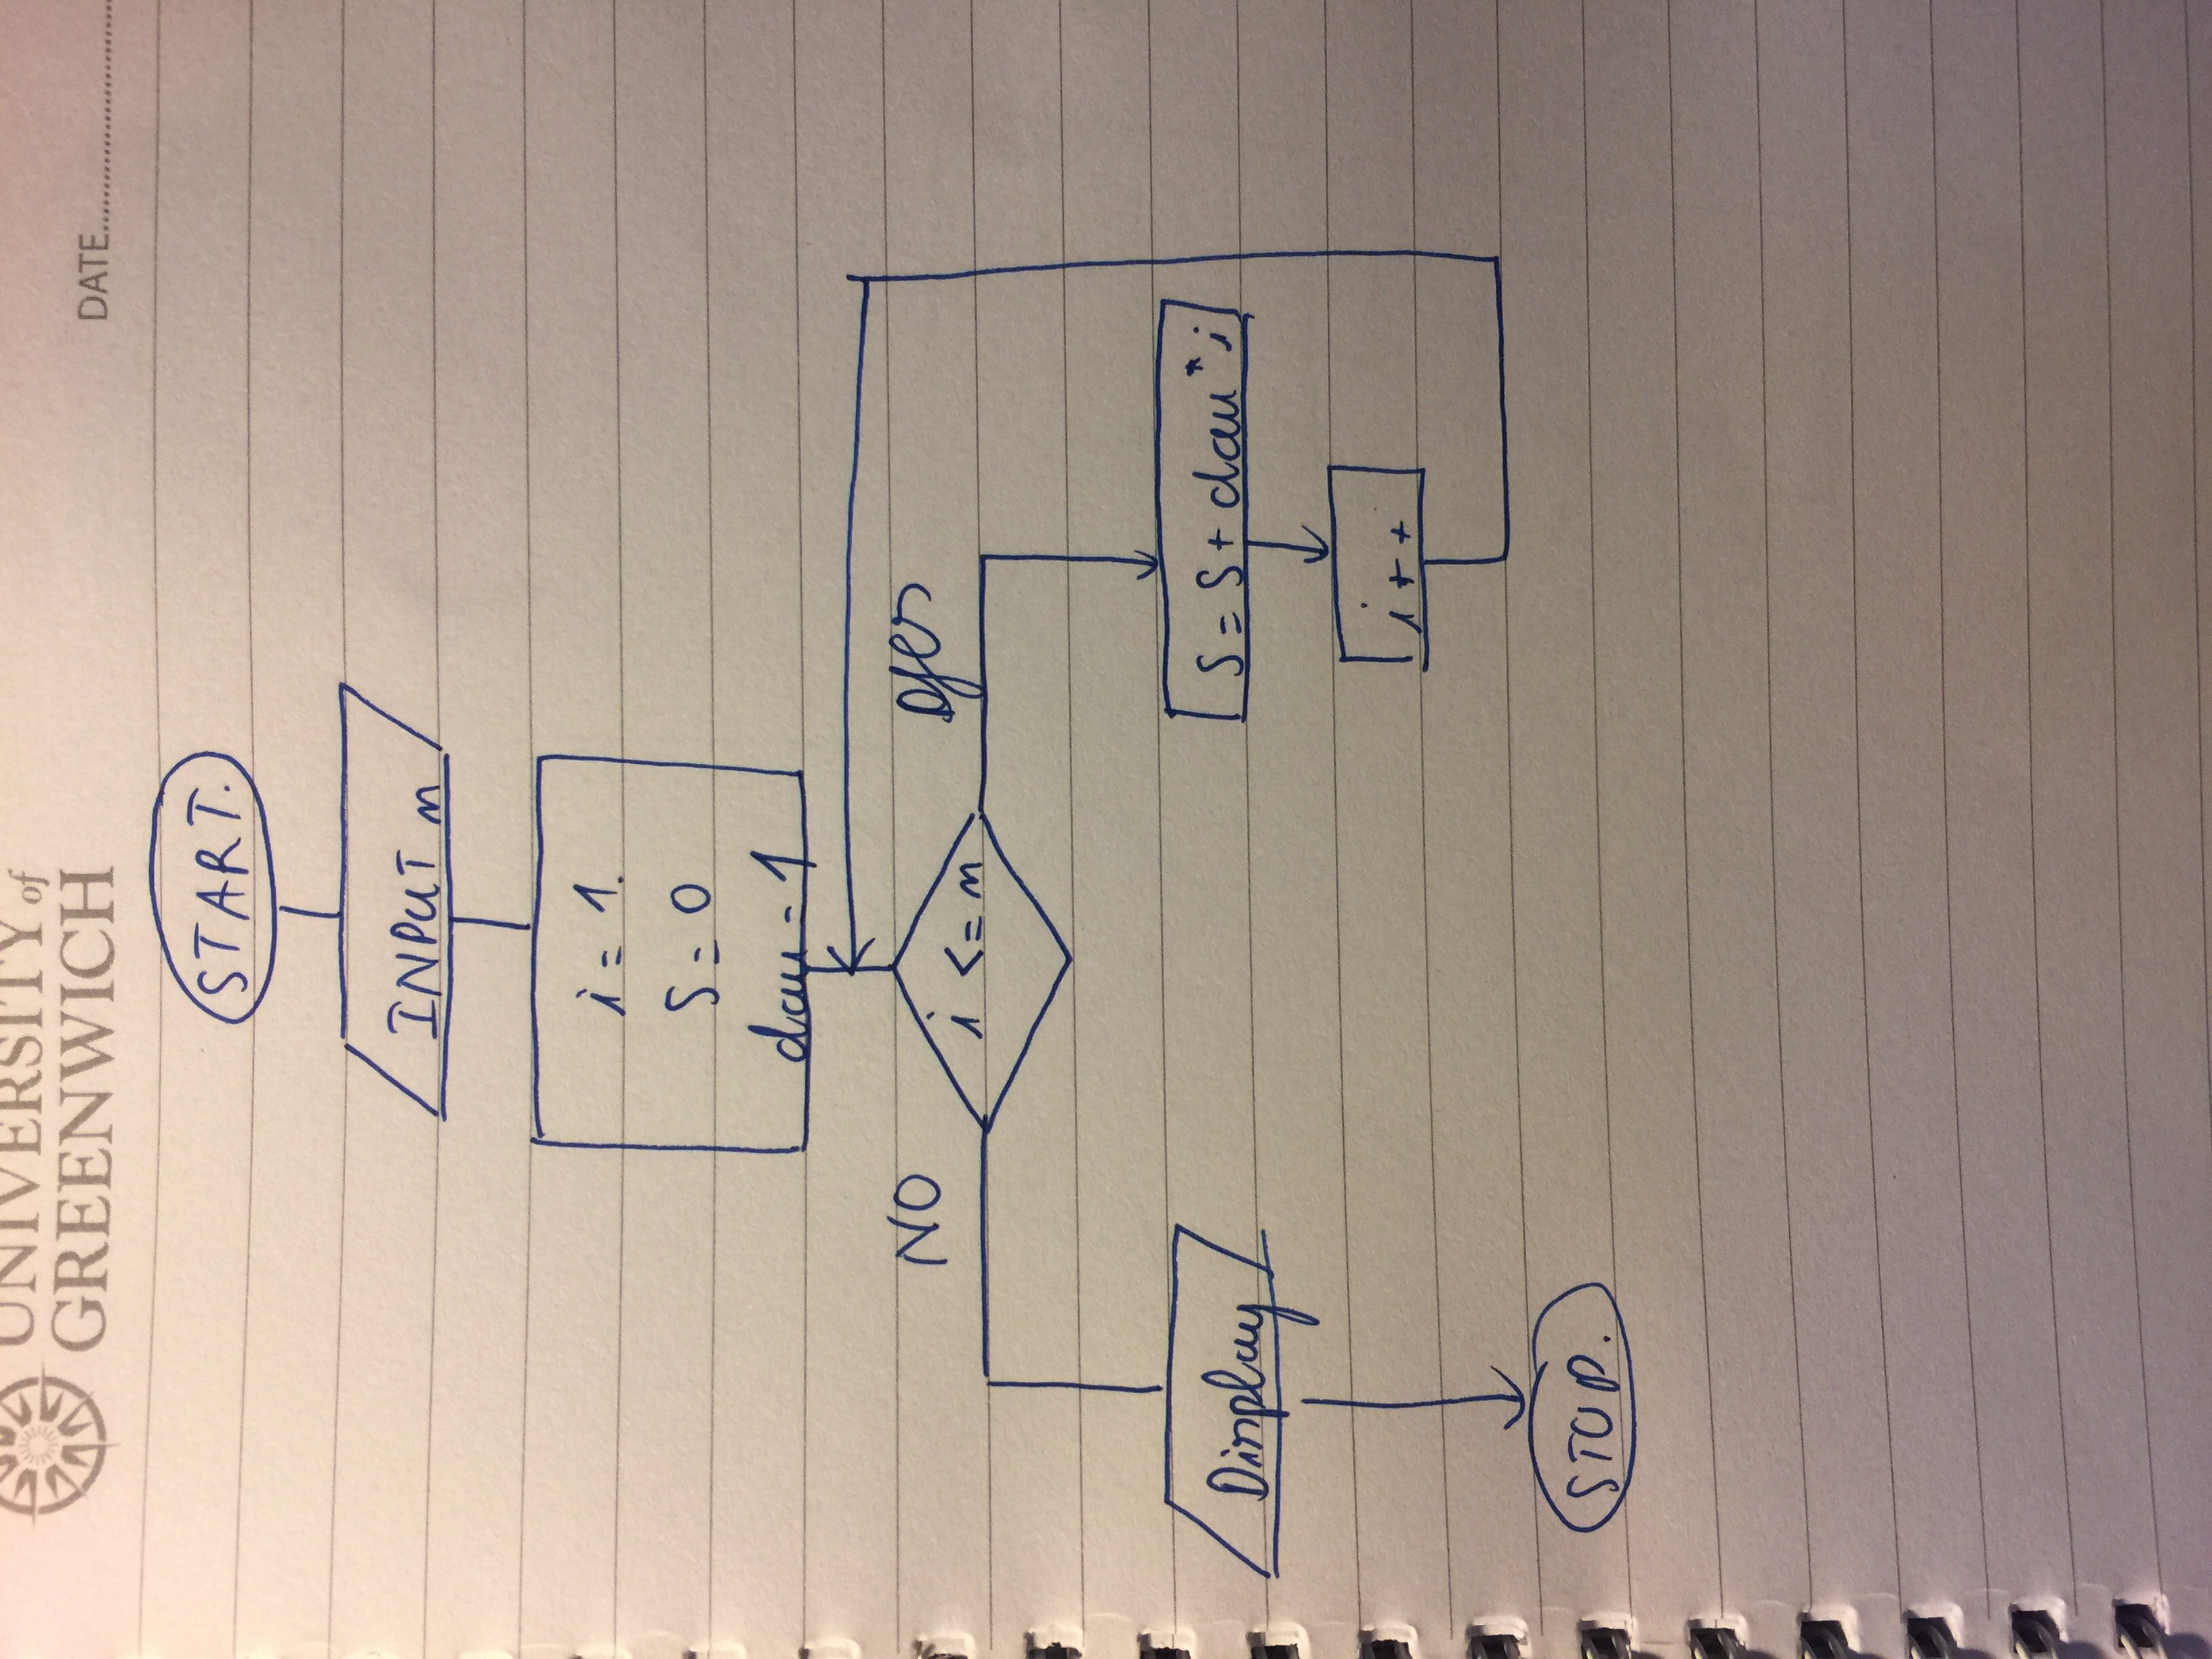 UNIVERSITY of
GREENWICH
DATE
START.
INPUT n
i = 1.
S = 0
dau = 1
NO
yes
i <= n
Display
S = S + dau * i
i++
STOP.